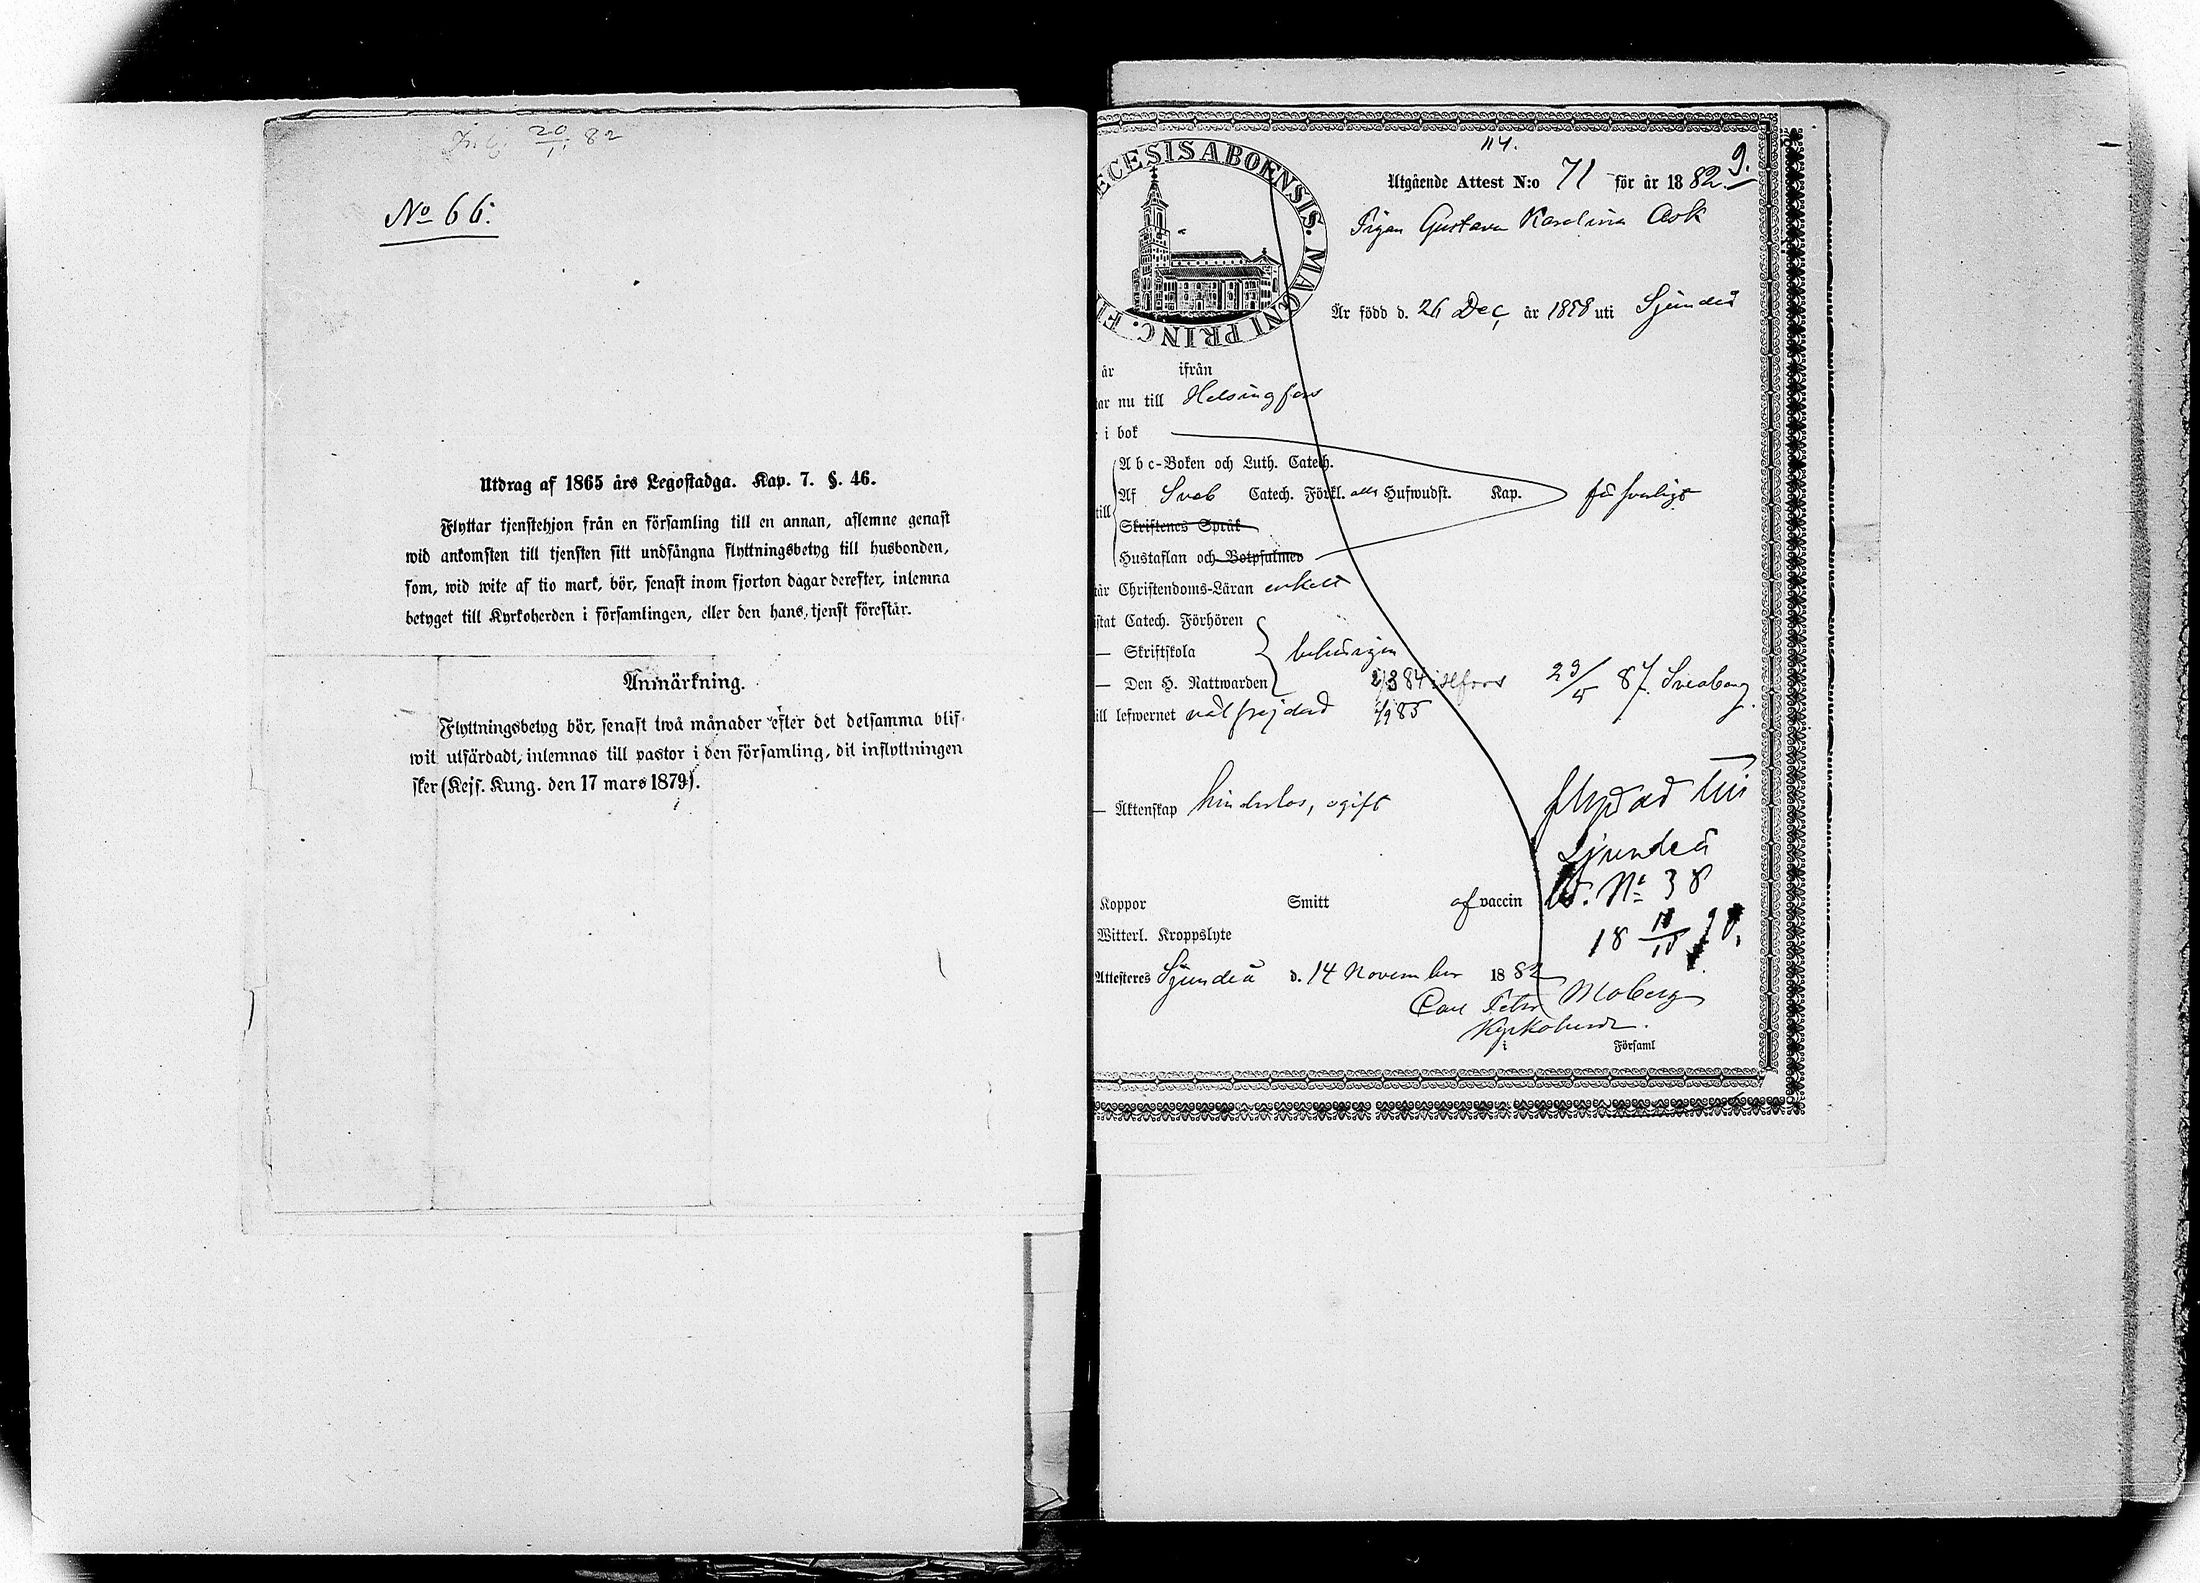 Inl. 20/11. 82
No 66.
Utdrag af 1865 års Legostadga. Kap. 7. §. 46.
Flyttar tjenstehjon från en församling till en annan, aflemne genast
wid ankomsten till tjensten sitt undfångna flyttningsbetyg till husbonden,
som, wid wite af tio mark, bör, senast inom fjorton dagar derefter, inlemna
betyget till Kyrkoherden i församlingen, eller den hans tjenst förestår.
Anmärkning.
Flyttningsbetyg bör, senast twå månader efter det detsamma blif-
wit utfärdadt, inlemnas till pastor i den församling, dit inflyttningen
sker (Kejs. Kung. den 17 mars 1879).
114.
9.
ECESIS ABOENSIS. MAGNI PRINC. FI
Utgående Attest N:o 71 för år 1882
Pigan Gustava Karolina Ask
Är född d. 26 Dec, år 1858 uti Sjundeå
år ifrån
tar nu till Helsingfors
i bok
Abc-Boken och Luth. Catech.
till Af Sveb Catech. Förkl. Hufwudst. Kap. försvarligt
Skriftenes Språk
Hustaflan och Botpsalmer
tår Christendoms-Läran enkelt
istat Catech. Förhören
— Skriftskola behörigen
— Den H. Nattwarden 84 i Hfors 23/5 87. Sveaborg
ill lefwernet välfrejdad 85
— Äktenskap hinderlös, ogift
flyttad till
Sjundeå
No 38
18 90.
Koppor Smitt af vaccin
Witterl. Kroppslyte
Attesteres Sjundeå d. 14 November 1882
Carl Petter Moberg
Kyrkoherde.
i Församl